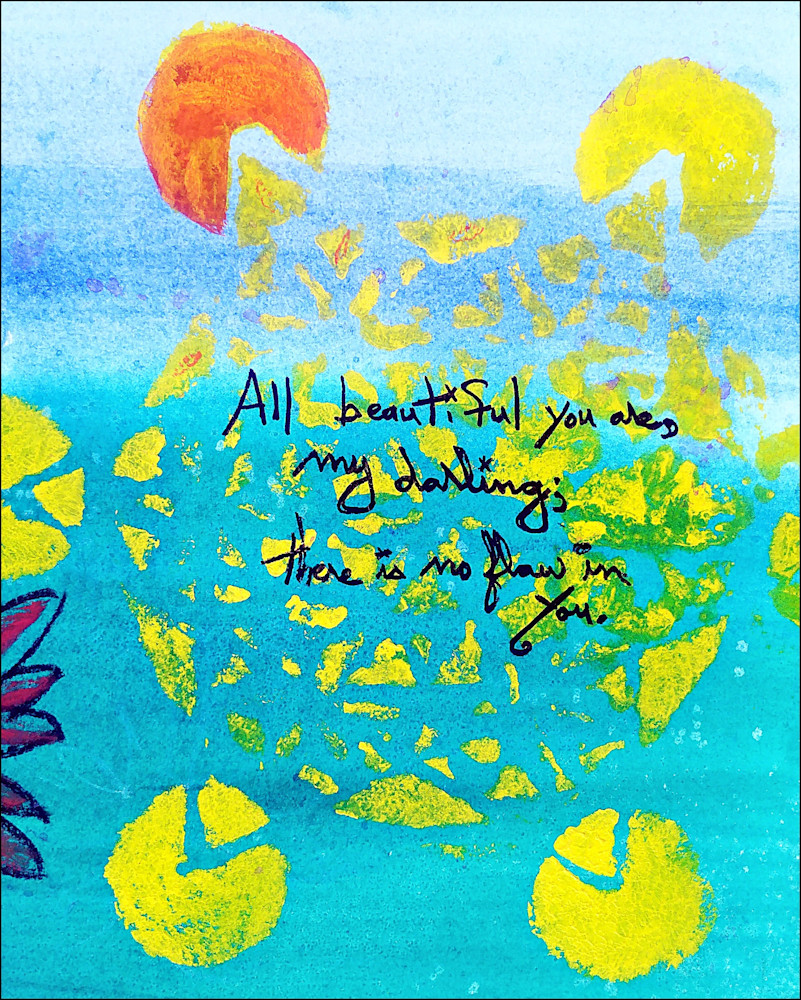 All beautiful you are,
my darling;
there is no flaw in
you.